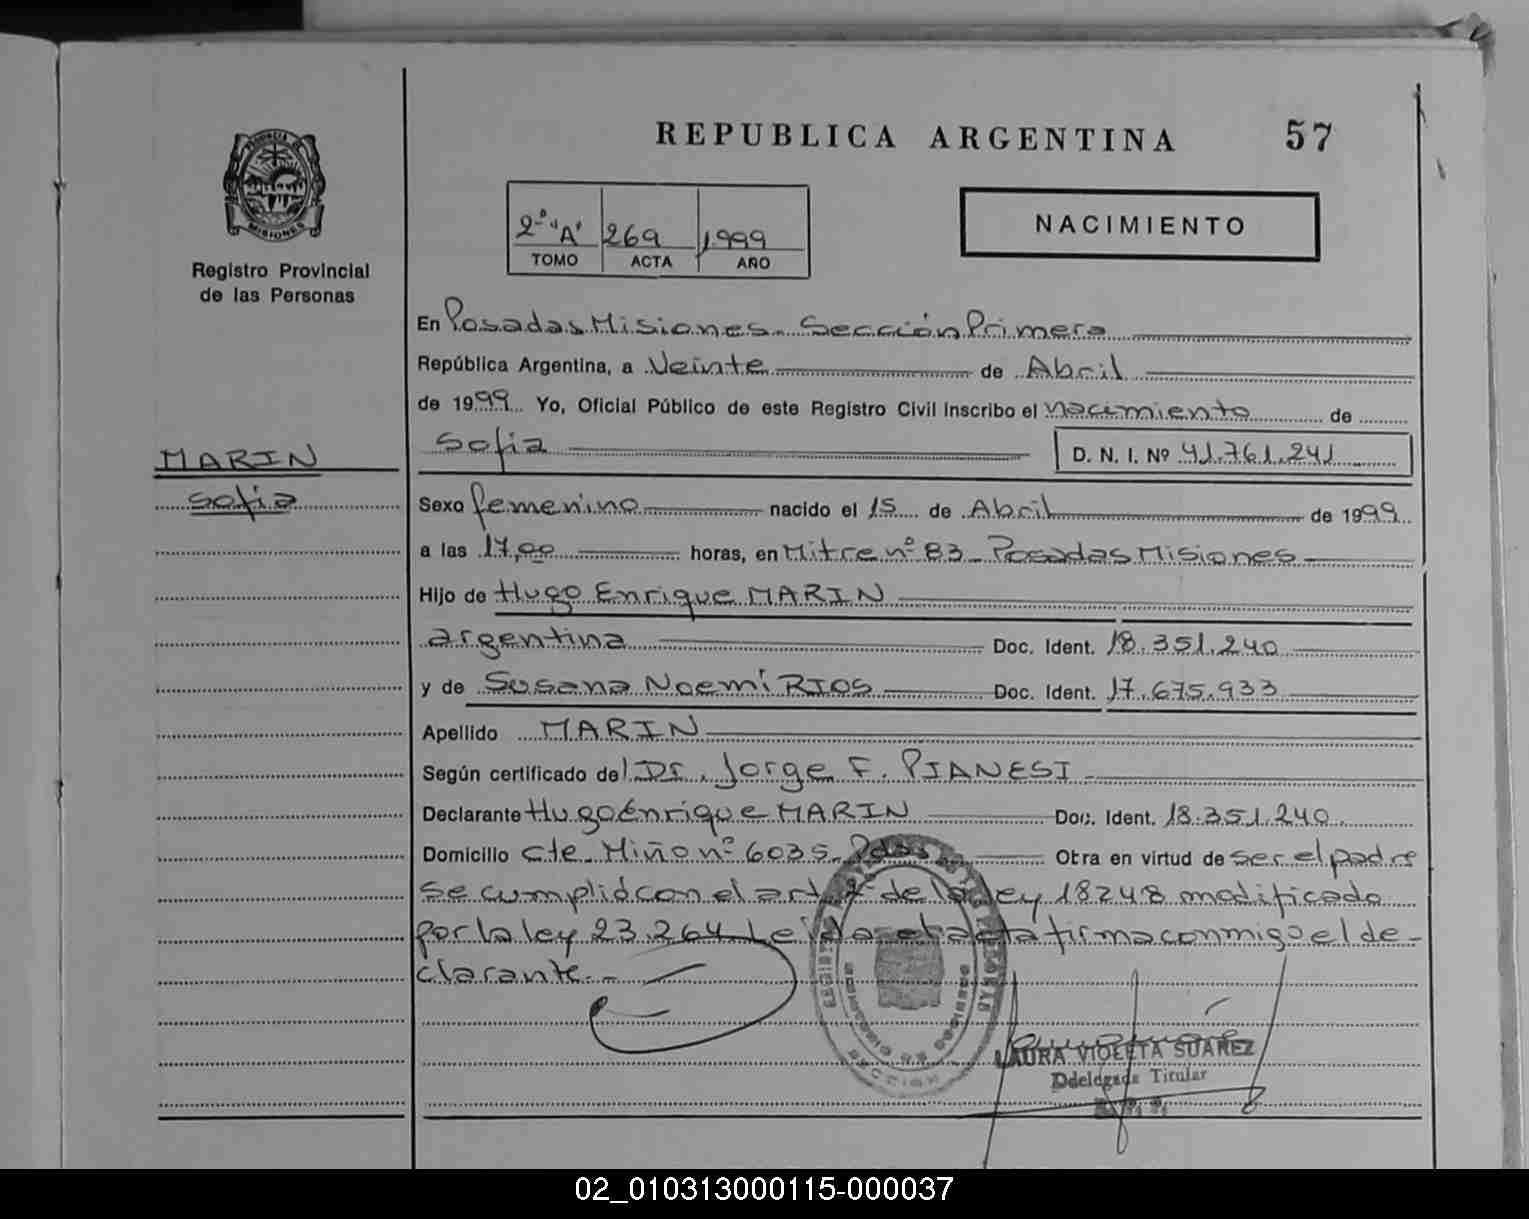 REPUBLICA ARGENTINA 57
PROVINCIA
MISIONES
Registro Provincial
de las Personas
2º "A" 269 1999
TOMO ACTA AÑO
NACIMIENTO
En Posadas Misiones. Sección Primera
República Argentina, a Veinte de Abril
de 1999 Yo, Oficial Público de este Registro Civil inscribo el nacimiento de
Sofia D. N. I. Nº 41.761.241
MARIN
Sofia
Sexo femenino nacido el 15 de Abril de 1999
a las 17,00 horas, en Mitre nº 83 - Posadas Misiones
Hijo de Hugo Enrique MARIN
argentina Doc. Ident. 18.351.240
y de Susana Noemi RIOS Doc. Ident. 17.675.933
Apellido MARIN
Según certificado del Dr. Jorge F. PIANESI
Declarante Hugo Enrique MARIN Doc. Ident. 18.351.240
Domicilio Cte. Miño nº 6035 - Pdas Obra en virtud de ser el padre
se cumplió con el art. 2º de la ley 18248 modificado
por la ley 23.264 Leída el acta firma conmigo el de-
clarante.-
LAURA VIOLETA SUAREZ
Ddelegada Titular
R. P. P.
02_010313000115-000037